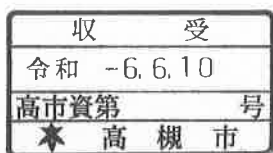 収 受
令和 -6.6.10
高市資第 号
高槻市